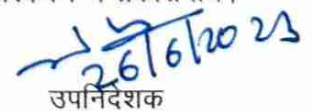 26/6/2023
उपनिदेशक